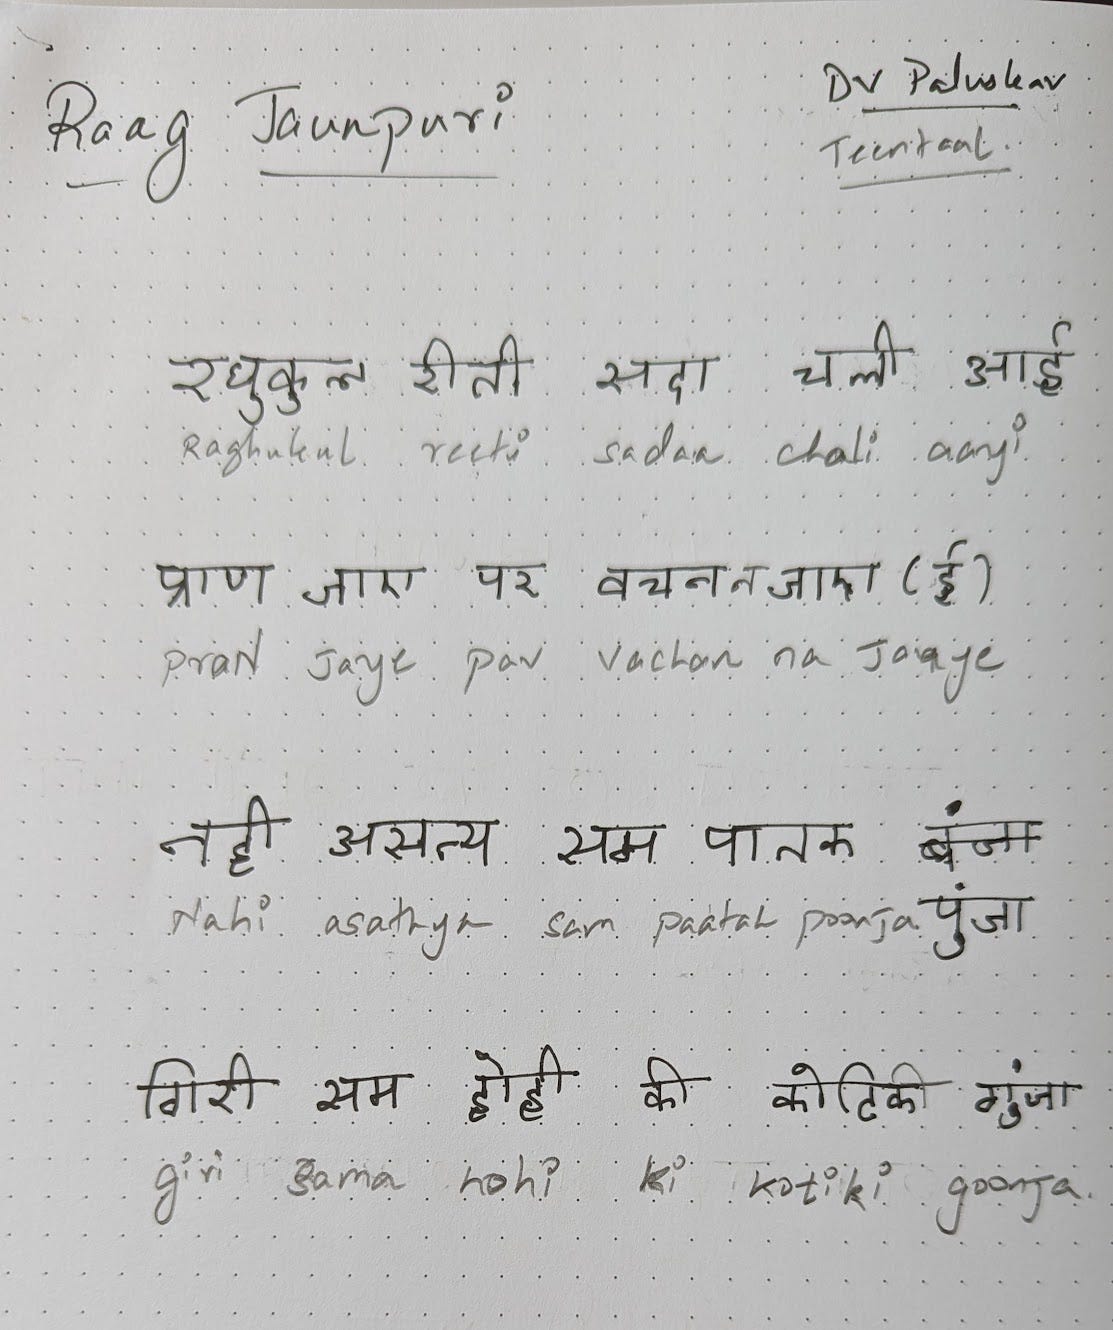 Raag Jaunpuri
DV Paluskar
Teentaal.
रघुकुल रीती सदा चली आई
Raghukul reeti sadaa chali aayi
प्राण जाए पर वचन न जाए (ई)
pran Jaye par vachan na Jaaye
नही असत्य सम पातक बंजा
Nahi asathya sam paatak poonja पुंजा
गिरी सम होही की कोटिकी गुंजा
giri sama hohi ki kotiki goonja.